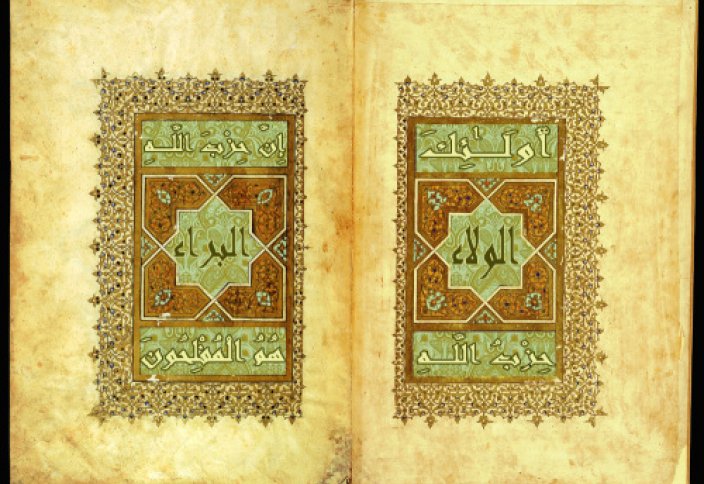 أُولَـٰئِكَ
الولاء
حِزْبُ اللَّهِ
إِنَّ حِزْبَ اللَّهِ
البراء
هُمُ الْمُفْلِحُونَ